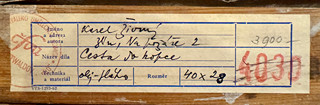 Jméno
a adresa
autora
Karel Živný
Zlín, Na Požáře 2
3900-
Název díla
Cesta do kopce
4030
Technika
a materiál
olej-plátno
Rozměr
40x28